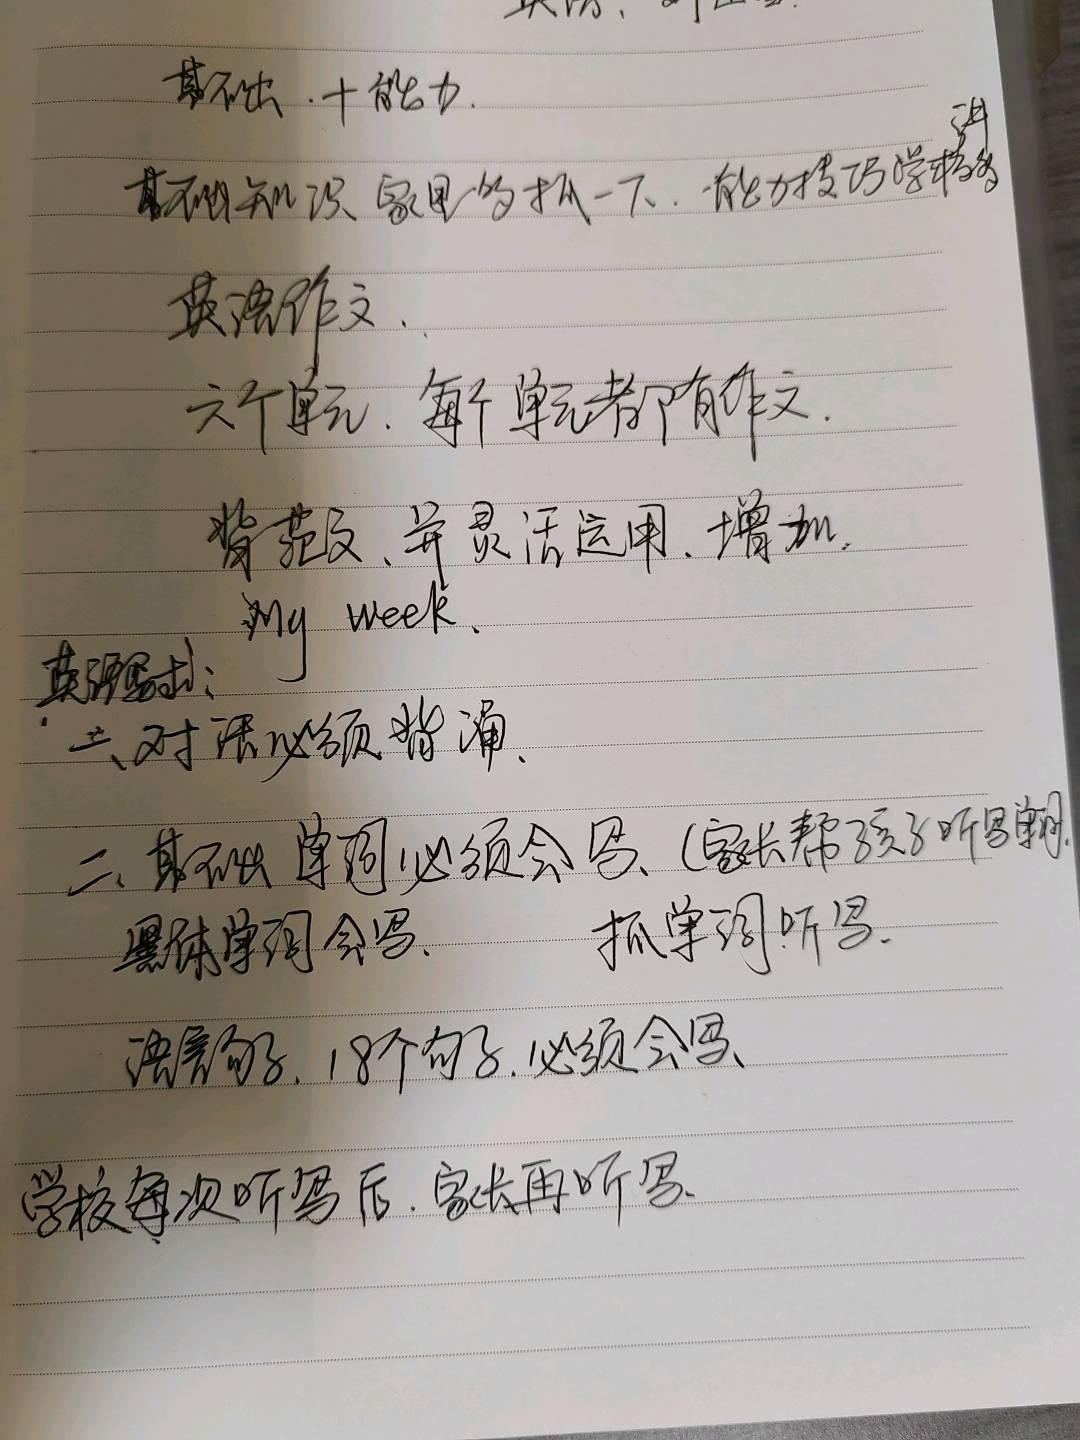 基础.十能力.
基础知识家里多抓一下.能力技巧学校多讲
英语作文.
六个单元.每个单元都有作文.
背范文、并灵活运用、增加.
My week.
英语:
一、对话必须背诵、
二、基础单词必须会写、(家长帮孩子听写单词.
黑体单词会写、 抓单词听写.
语言句子.18个句子.必须会写、
学校每次听写后.家长再听写.